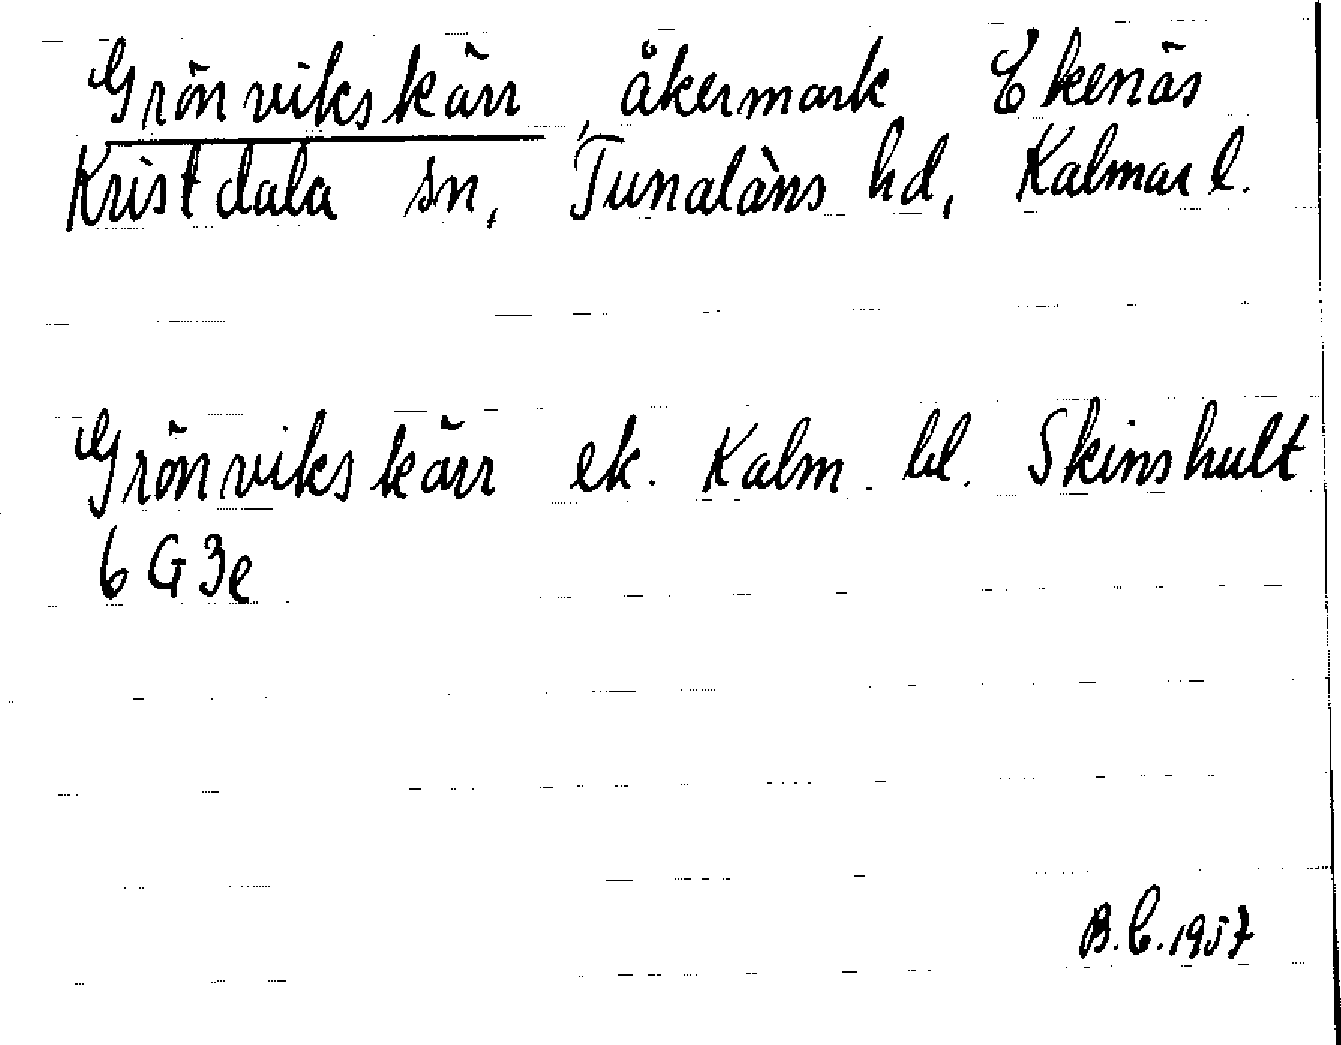 Grönvikskärr, åkermark Ekenäs
Kristdala sn, Tunaläns hd, Kalmar l.
Grönvikskärr ek. Kalm. bl. Skinshult
6 G 3e
B.C. 1957